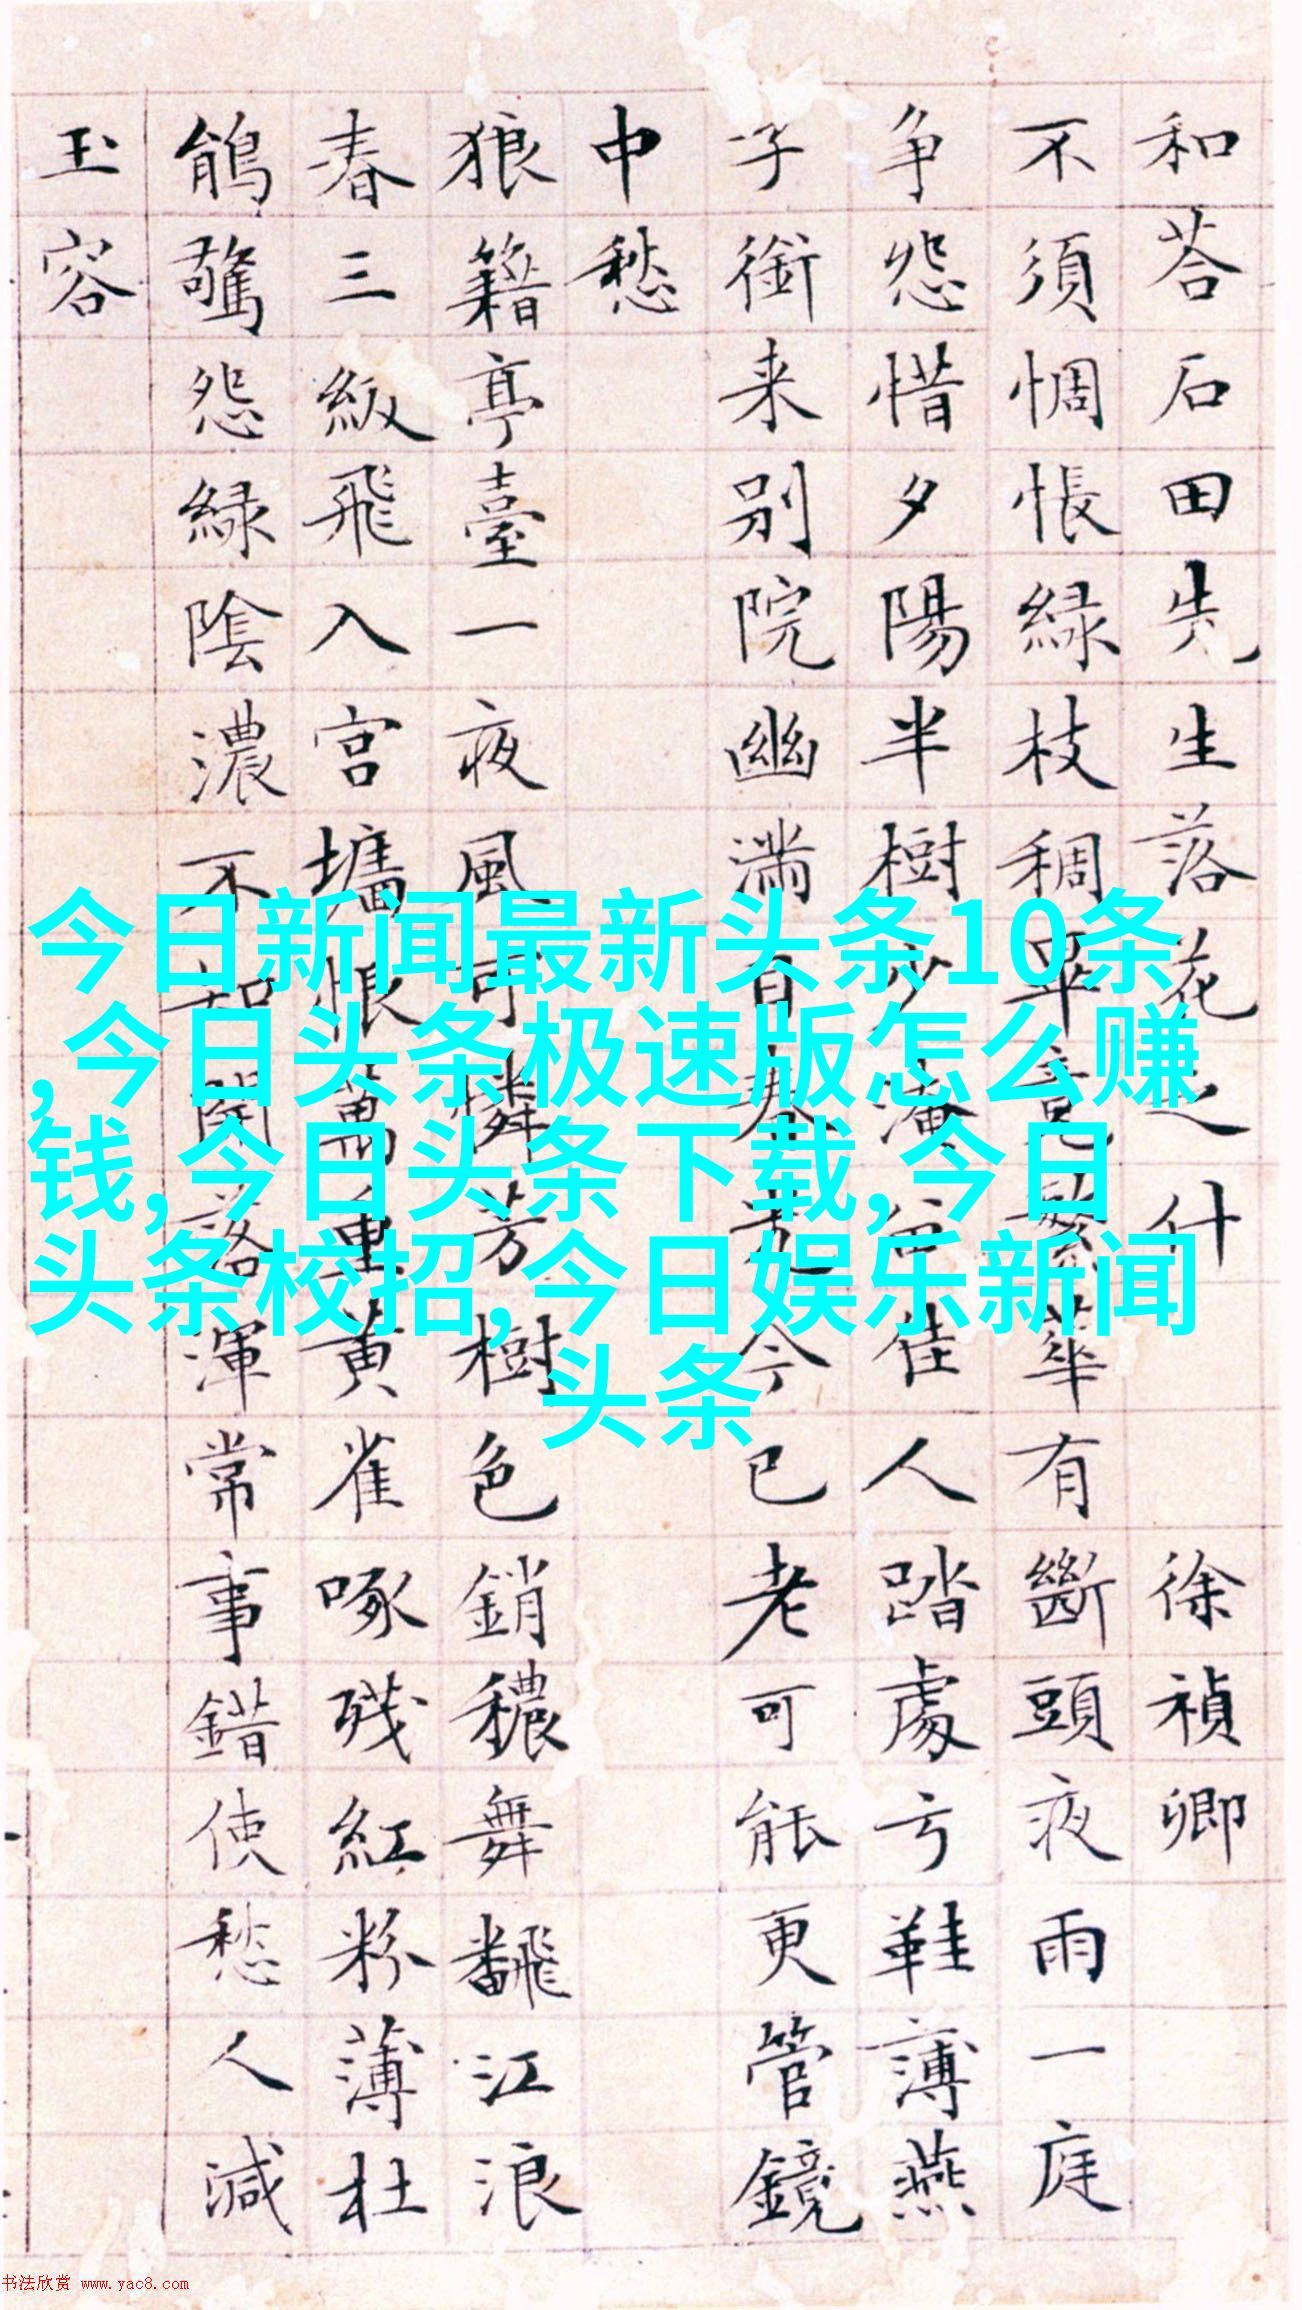 和荅石田先生落花之什 徐禎卿
不須惆悵緑枝稠畢竟繁華有斷頭夜雨一庭
争怨惜夕陽半樹少淹佳人踏處弓鞋薄燕
子銜来别院幽滿目春光今已老可能更管鏡
中愁
狼籍亭臺一夜風可憐芳樹色銷穠舞飜江浪
春三級飛入宮墻悵萬重黄雀啄殘紅粉薄杜
鵑驚怨緑陰濃不知開落渾常事錯使愁人減
玉容
今日新闻最新头条10条
,今日头条极速版怎么赚
钱,今日头条下载,今日
头条校招,今日娱乐新闻
头条
书法欣赏 www.yac8.com